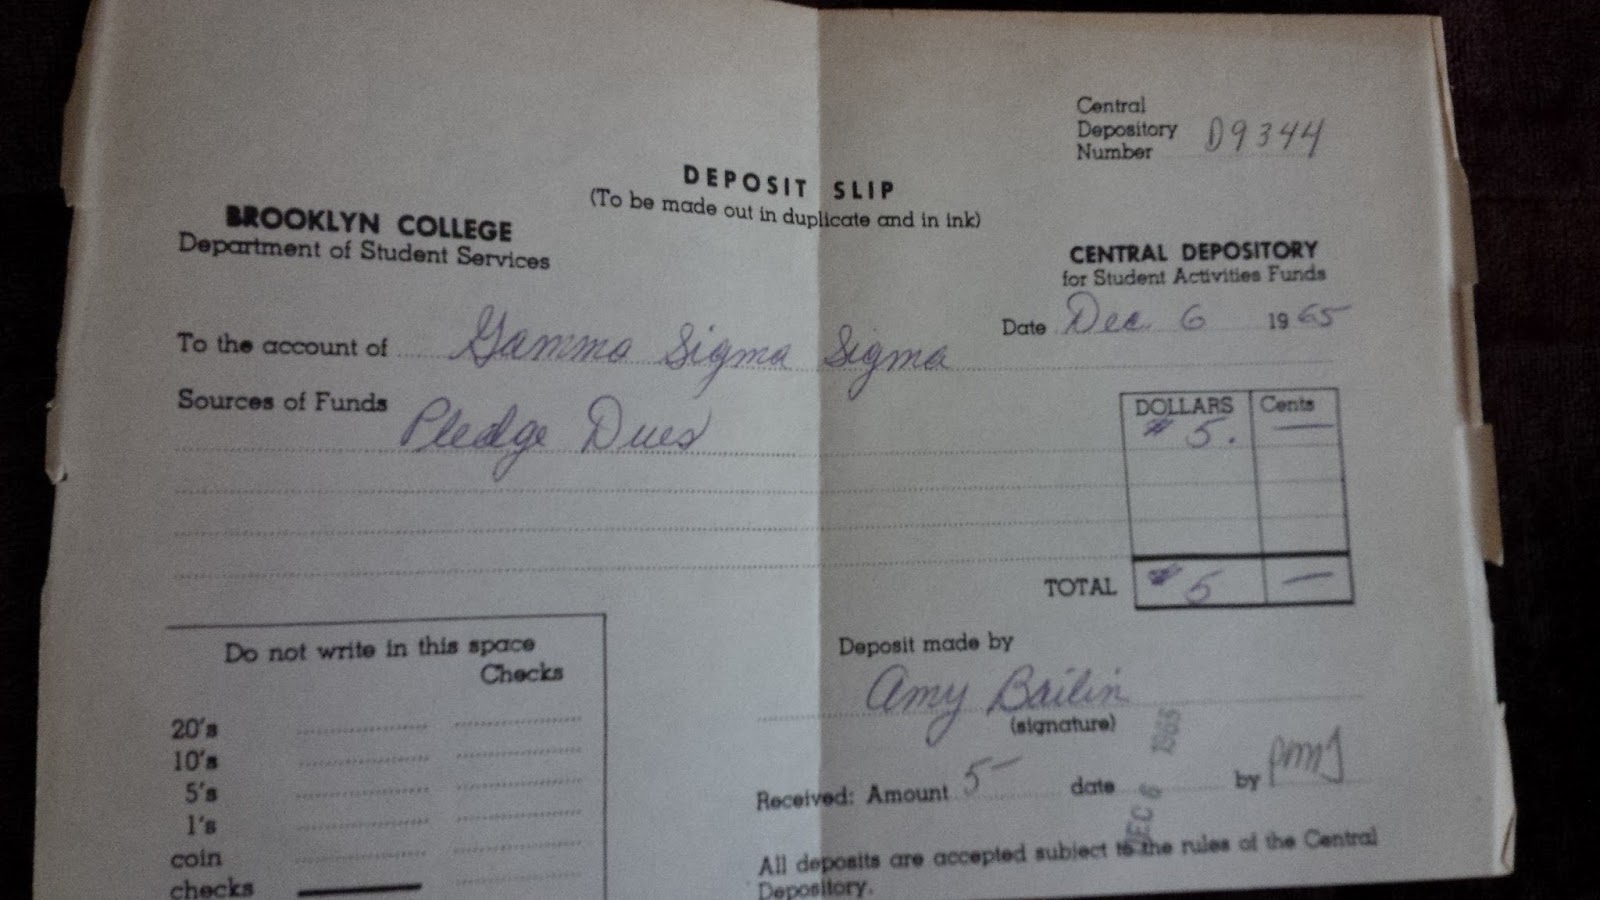 Central
Depository D9344
Number
DEPOSIT SLIP
(To be made out in duplicate and in ink)
BROOKLYN COLLEGE
Department of Student Services
CENTRAL DEPOSITORY
for Student Activities Funds
Date Dec. 6 1965
To the account of Gamma Sigma Sigma
Sources of Funds
Pledge Dues
DOLLARS Cents
$ 5. —
TOTAL $ 5 —
Do not write in this space
Checks
20's
10's
5's
1's
coin
checks
Deposit made by
Amy Bailin
(signature)
Received: Amount 5— date DEC 6 1965 by
All deposits are accepted subject to the rules of the Central
Depository.